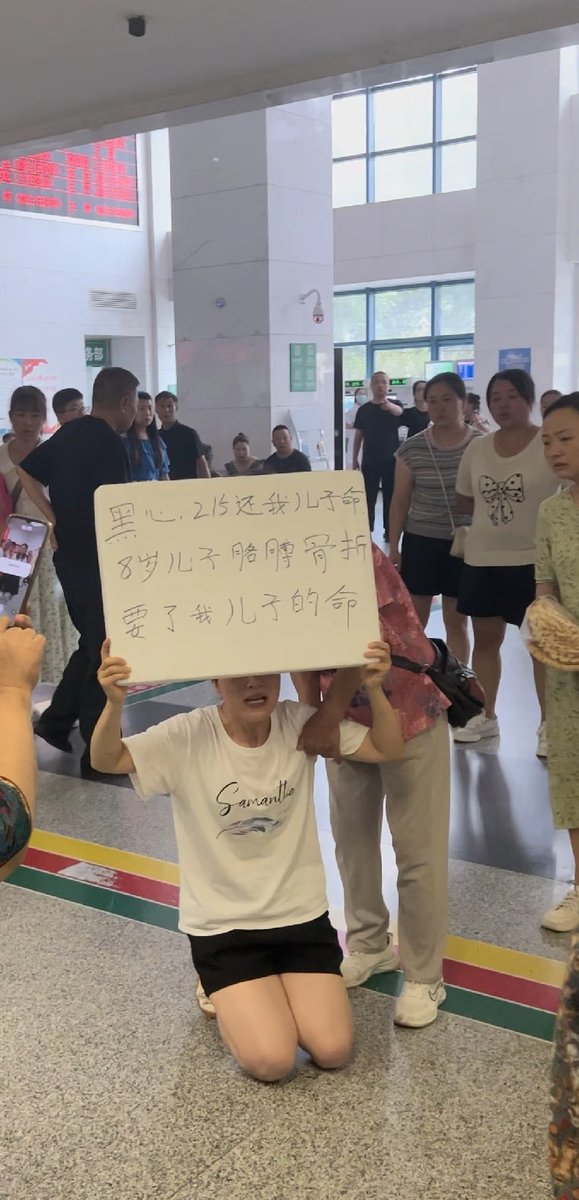 务部
黑心.215还我儿子命
8岁儿子胳膊骨折
要了我儿子的命
Samantha